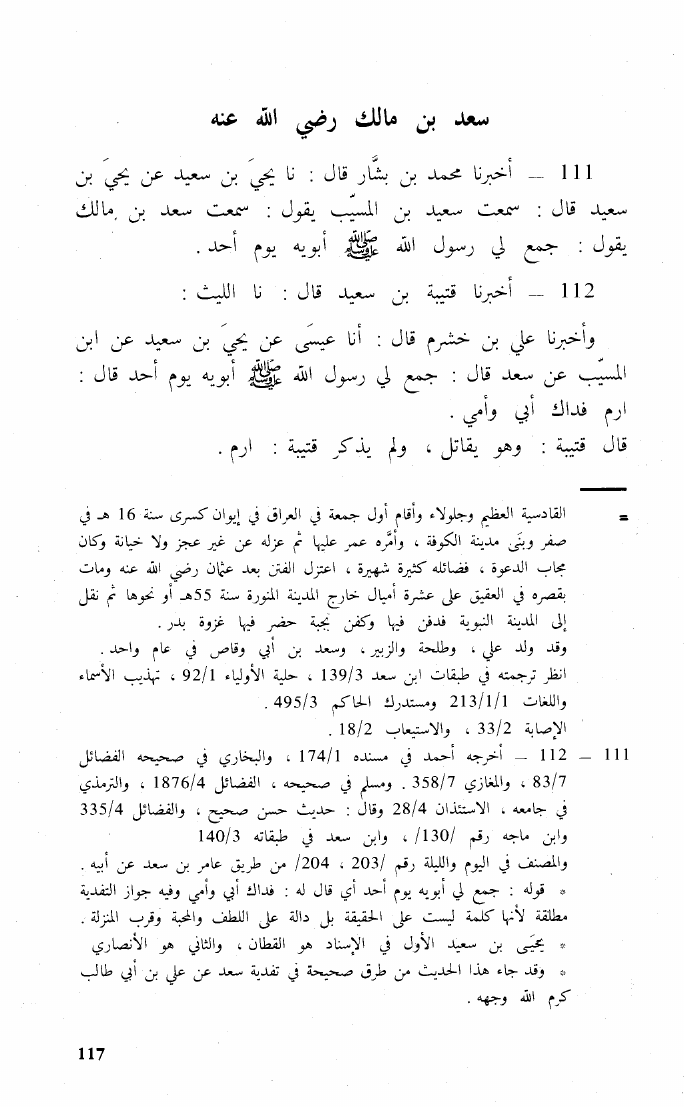 سعد بن مالك رضي الله عنه
111 ــ أخبرنا محمد بن بشَّار قال : نا يحيَ بن سعيد عن يحيَ بن
سعيد قال : سمعت سعيد بن المسيّب يقول : سمعت سعد بن مالك
يقول : جمع لي رسول الله ﷺ أبويه يوم أحد .
112 ــ أخبرنا قتيبة بن سعيد قال : نا الليث :
وأخبرنا علي بن خشرم قال : أنا عيسَى عن يحيَ بن سعيد عن ابن
المسيّب عن سعد قال : جمع لي رسول الله ﷺ أبويه يوم أحد قال :
ارم فداك أبي وأمي .
قال قتيبة : وهو يقاتل ، ولم يذكر قتيبة : ارم .
= القادسية العظيم وجلولاء وأقام أول جمعة في العراق في إيوان كسرى سنة 16 هـ في
صفر وبنَى مدينة الكوفة ، وأمَّره عمر عليها ثم عزله عن غير عجز ولا خيانة وكان
مجاب الدعوة ، فضائله كثيرة شهيرة ، اعتزل الفتن بعد عثمان رضي الله عنه ومات
بقصره في العقيق على عشرة أميال خارج المدينة المنورة سنة 55هـ أو نحوها ثم نقل
إلى المدينة النبوية فدفن فيها وكفن بجبة حضر فيها غزوة بدر .
وقد ولد علي ، وطلحة والزبير ، وسعد بن أبي وقاص في عام واحد .
انظر ترجمته في طبقات ابن سعد 139/3 ، حلية الأولياء 92/1 ، تهذيب الأسماء
واللغات 213/1/1 ومستدرك الحاكم 495/3 .
الإصابة 33/2 ، والاستيعاب 18/2 .
111 ــ 112 ــ أخرجه أحمد في مسنده 174/1 ، والبخاري في صحيحه الفضائل
83/7 ، والمغازي 358/7 . ومسلم في صحيحه ، الفضائل 1876/4 ، والترمذي
في جامعه ، الاستئذان 28/4 وقال : حديث حسن صحيح ، والفضائل 335/4
وابن ماجه رقم /130/ ، وابن سعد في طبقاته 140/3
والمصنف في اليوم والليلة رقم /203 ، 204/ من طريق عامر بن سعد عن أبيه .
* قوله : جمع لي أبويه يوم أحد أي قال له : فداك أبي وأمي وفيه جواز التفدية
مطلقة لأنها كلمة ليست على الحقيقة بل دالة على اللطف والمحبة وقرب المنزلة .
* يحيَى بن سعيد الأول في الإسناد هو القطان ، والثاني هو الأنصاري
* وقد جاء هذا الحديث من طرق صحيحة في تفدية سعد عن علي بن أبي طالب
كرم الله وجهه .
117